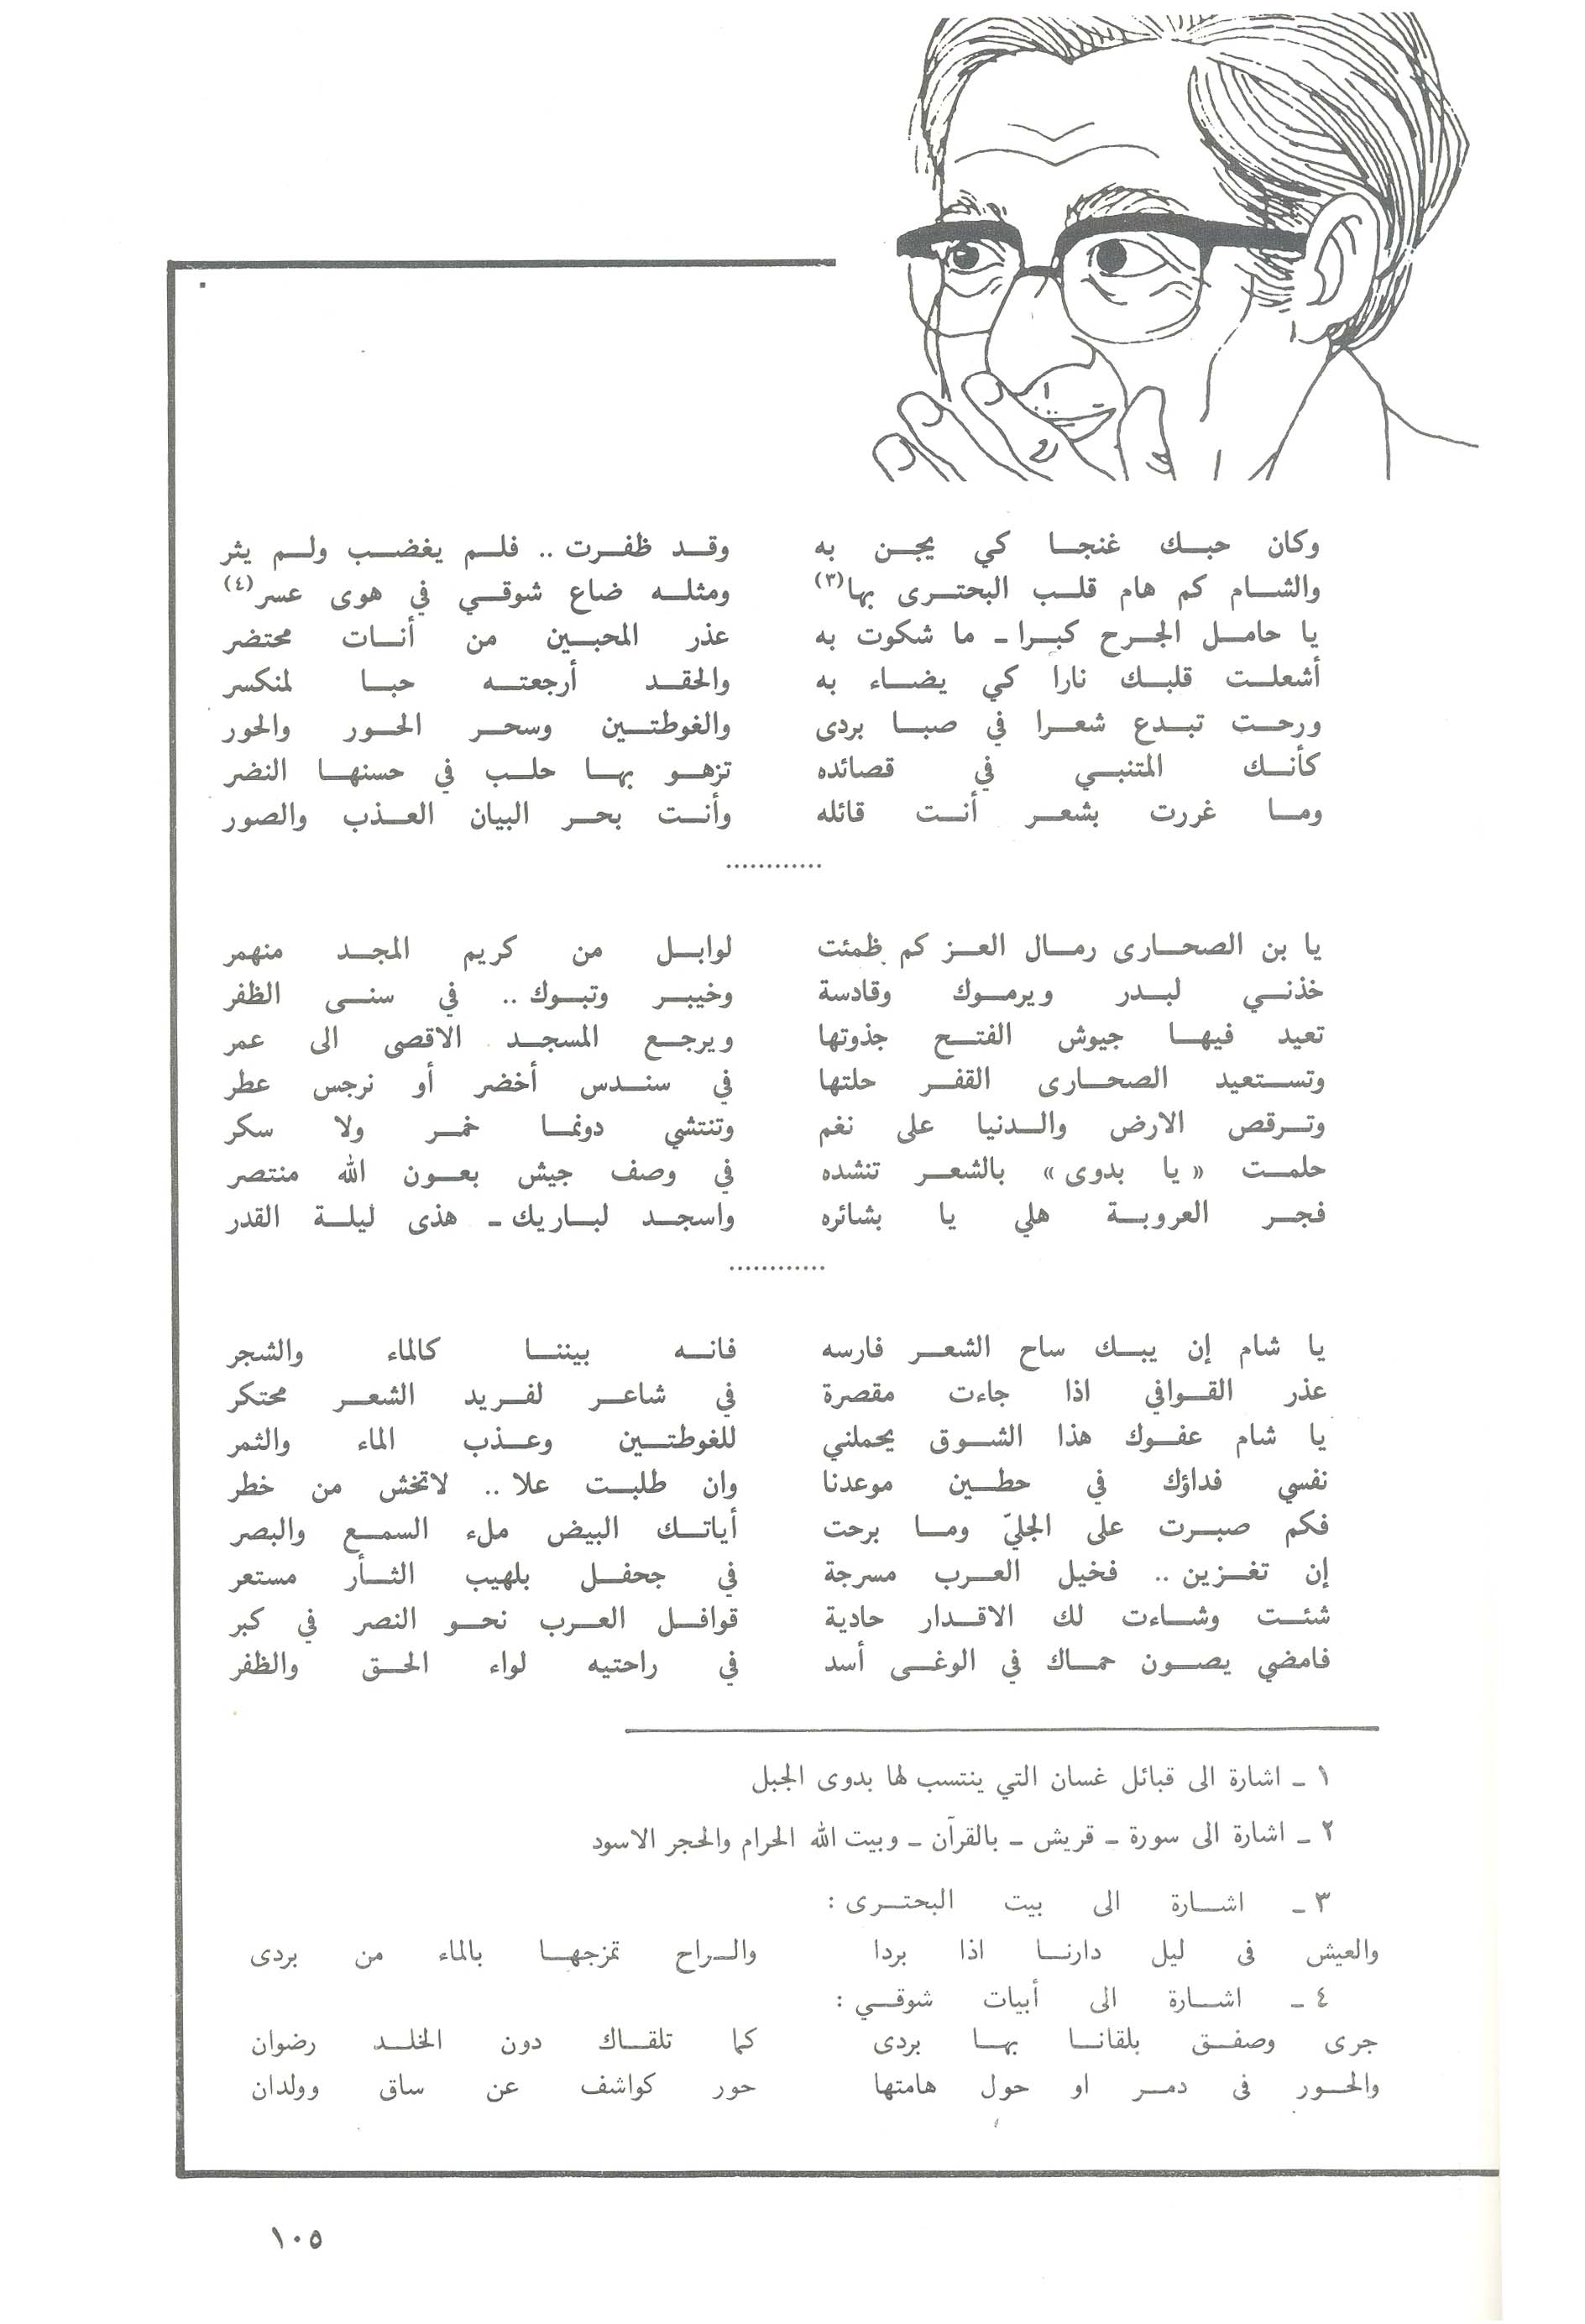 وكان حبك غنجا كي يجن به وقد ظفرت .. فلم يغضب ولم يثر
والشام كم هام قلب البحترى بها(٣) ومثله ضاع شوقي في هوى عسر(٤)
يا حامل الجرح كبرا ـ ما شكوت به عذر المحبين من أنات محتضر
أشعلت قلبك نارا كي يضاء به والحقد أرجعته حبا لمنكسر
ورحت تبدع شعرا في صبا بردى والغوطتين وسحر الحور والحور
كأنك المتنبي في قصائده تزهو بها حلب في حسنها النضر
وما غررت بشعر أنت قائله وأنت بحر البيان العذب والصور
............
يا بن الصحارى رمال العز كم ظمئت لوابل من كريم المجد منهمر
خذني لبدر ويرموك وقادسة وخيبر وتبوك .. في سنى الظفر
تعيد فيها جيوش الفتح جذوتها ويرجع المسجد الاقصى الى عمر
وتستعيد الصحارى القفر حلتها في سندس أخضر أو نرجس عطر
وترقص الارض والدنيا على نغم وتنتشي دونما خمر ولا سكر
حلمت « يا بدوى » بالشعر تنشده في وصف جيش بعون الله منتصر
فجر العروبة هلي يا بشائره واسجد لباريك ـ هذى ليلة القدر
............
يا شام إن يبك ساح الشعر فارسه فانه بيننا كالماء والشجر
عذر القوافي اذا جاءت مقصرة في شاعر لفريد الشعر محتكر
يا شام عفوك هذا الشوق يحملني للغوطتين وعذب الماء والثمر
نفسي فداؤك في حطين موعدنا وان طلبت علا .. لاتخش من خطر
فكم صبرت على الجليّ وما برحت أياتك البيض ملء السمع والبصر
إن تغزين .. فخيل العرب مسرجة في جحفل بلهيب الثأر مستعر
شئت وشاءت لك الاقدار حادية قوافل العرب نحو النصر في كبر
فامضي يصون حماك في الوغى أسد في راحتيه لواء الحق والظفر
١ ـ اشارة الى قبائل غسان التي ينتسب لها بدوى الجبل
٢ ـ اشارة الى سورة ـ قريش ـ بالقرآن ـ وبيت الله الحرام والحجر الاسود
٣ ـ اشارة الى بيت البحترى :
والعيش فى ليل دارنا اذا بردا والراح تمزجها بالماء من بردى
٤ ـ اشارة الى أبيات شوقي :
جرى وصفق بلقانا بها بردى كما تلقاك دون الخلد رضوان
والحور فى دمر او حول هامتها حور كواشف عن ساق وولدان
١٠٥